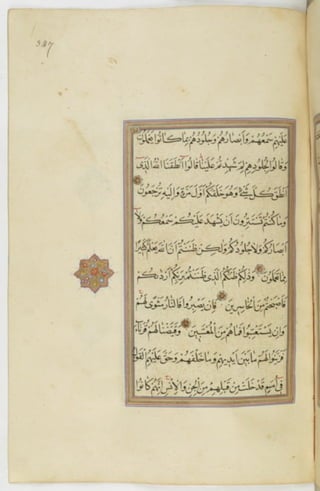 عليهم سمعهم وابصارهم وجلودهم بما كانوا يعملون
وقالوا لجلودهم لم شهدتم علينا قالوا انطقنا الله الذى
انطق كل شىء وهو خلقكم اول مرة واليه ترجعون
وما كنتم تستترون ان يشهد عليكم سمعكم ولا
ابصاركم ولا جلودكم ولكن ظننتم ان الله لا يعلم كثيرا
مما تعملون وذلكم ظنكم الذى ظننتم بربكم ارديكم
فاصبحتم من الخاسرين فان يصبروا فالنار مثوى لهم
وان يستعتبوا فما هم من المعتبين وقيضنا لهم قرناء
فزينوا لهم ما بين ايديهم وما خلفهم وحق عليهم القول
فى امم قد خلت من قبلهم من الجن والانس انهم كانوا